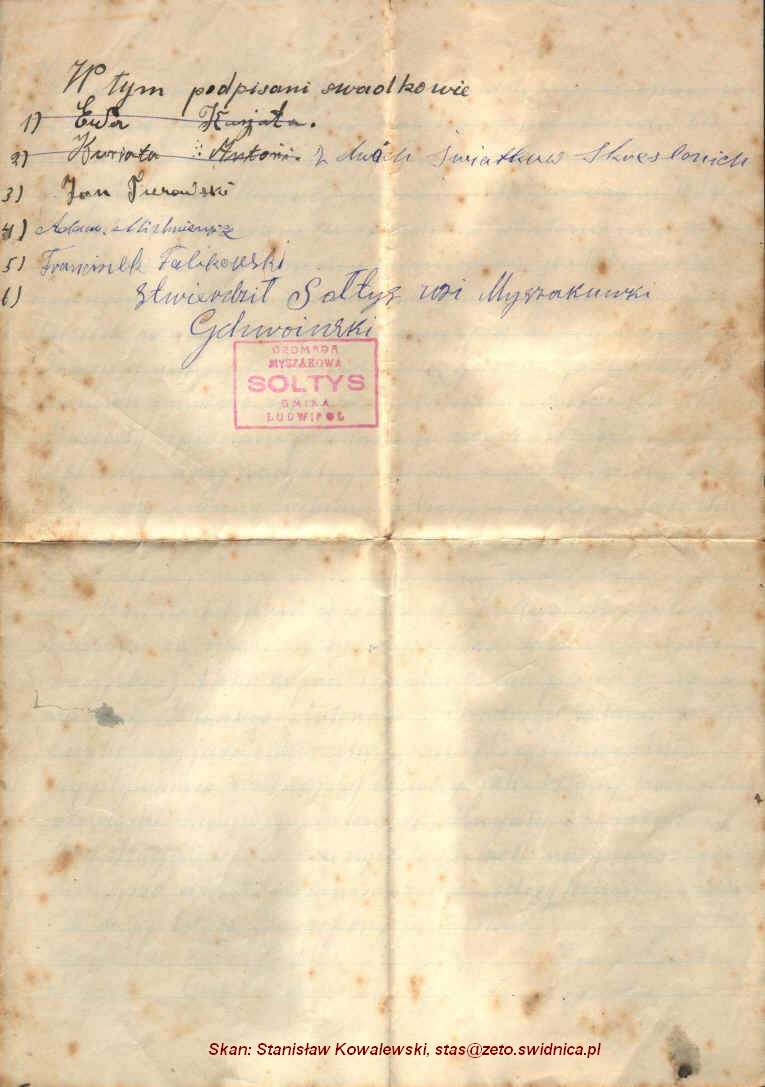 W tym podpisani swadkowie
1) Ewa
2) Kwiata Antoni. 2 dwóch świadkow skreslonich
3) Jan Turowski
4) Adam
5) Franciszek Falikowski
6) stwierdził Sołtys wsi Myszakuwki
GROMADA
MYSZAKOWA
SOŁTYS
GMINA
LUDWIPOL
Skan: Stanisław Kowalewski, stas@zeto.swidnica.pl